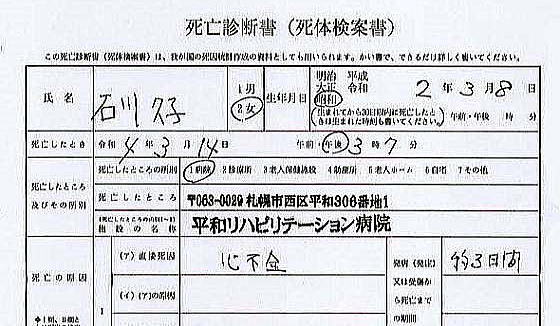 死亡診断書（死体検案書）
この死亡診断書（死体検案書）は、我が国の死因統計作成の資料としても用いられます。かい書で、できるだけ詳しく書いてください。
氏 名 石川 久子 1男 2女 生年月日 明治 平成 昭和 大正 令和 2年3月8日
（生まれてから30日以内に死亡したときは生まれた時刻も書いてください。） 午前・午後 時 分
死亡したとき 令和 4年3月14日 午前・午後 3時7分
死亡したところ及びその種別
死亡したところの種別 1病院 2診療所 3老人保健施設 4助産所 5老人ホーム 6自宅 7その他
死亡したところ 〒063-0029 札幌市西区平和306番地1
（死亡したところの種別1～5）施設の名称 平和リハビリテーション病院
死亡の原因
（ア）直接死因 心不全
発病（発症）又は受傷から死亡までの期間 約3日間
（イ）（ア）の原因
I